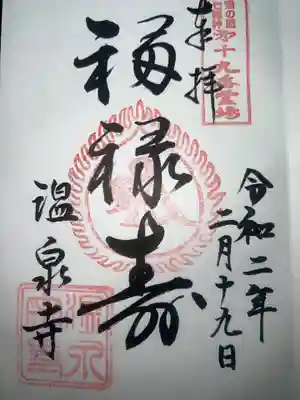 奉拝
第十九番霊場
令和二年
二月十九日
福禄寿
温泉寺